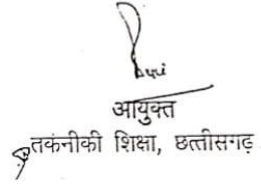 आयुक्त
तकंनीकी शिक्षा, छत्तीसगढ़